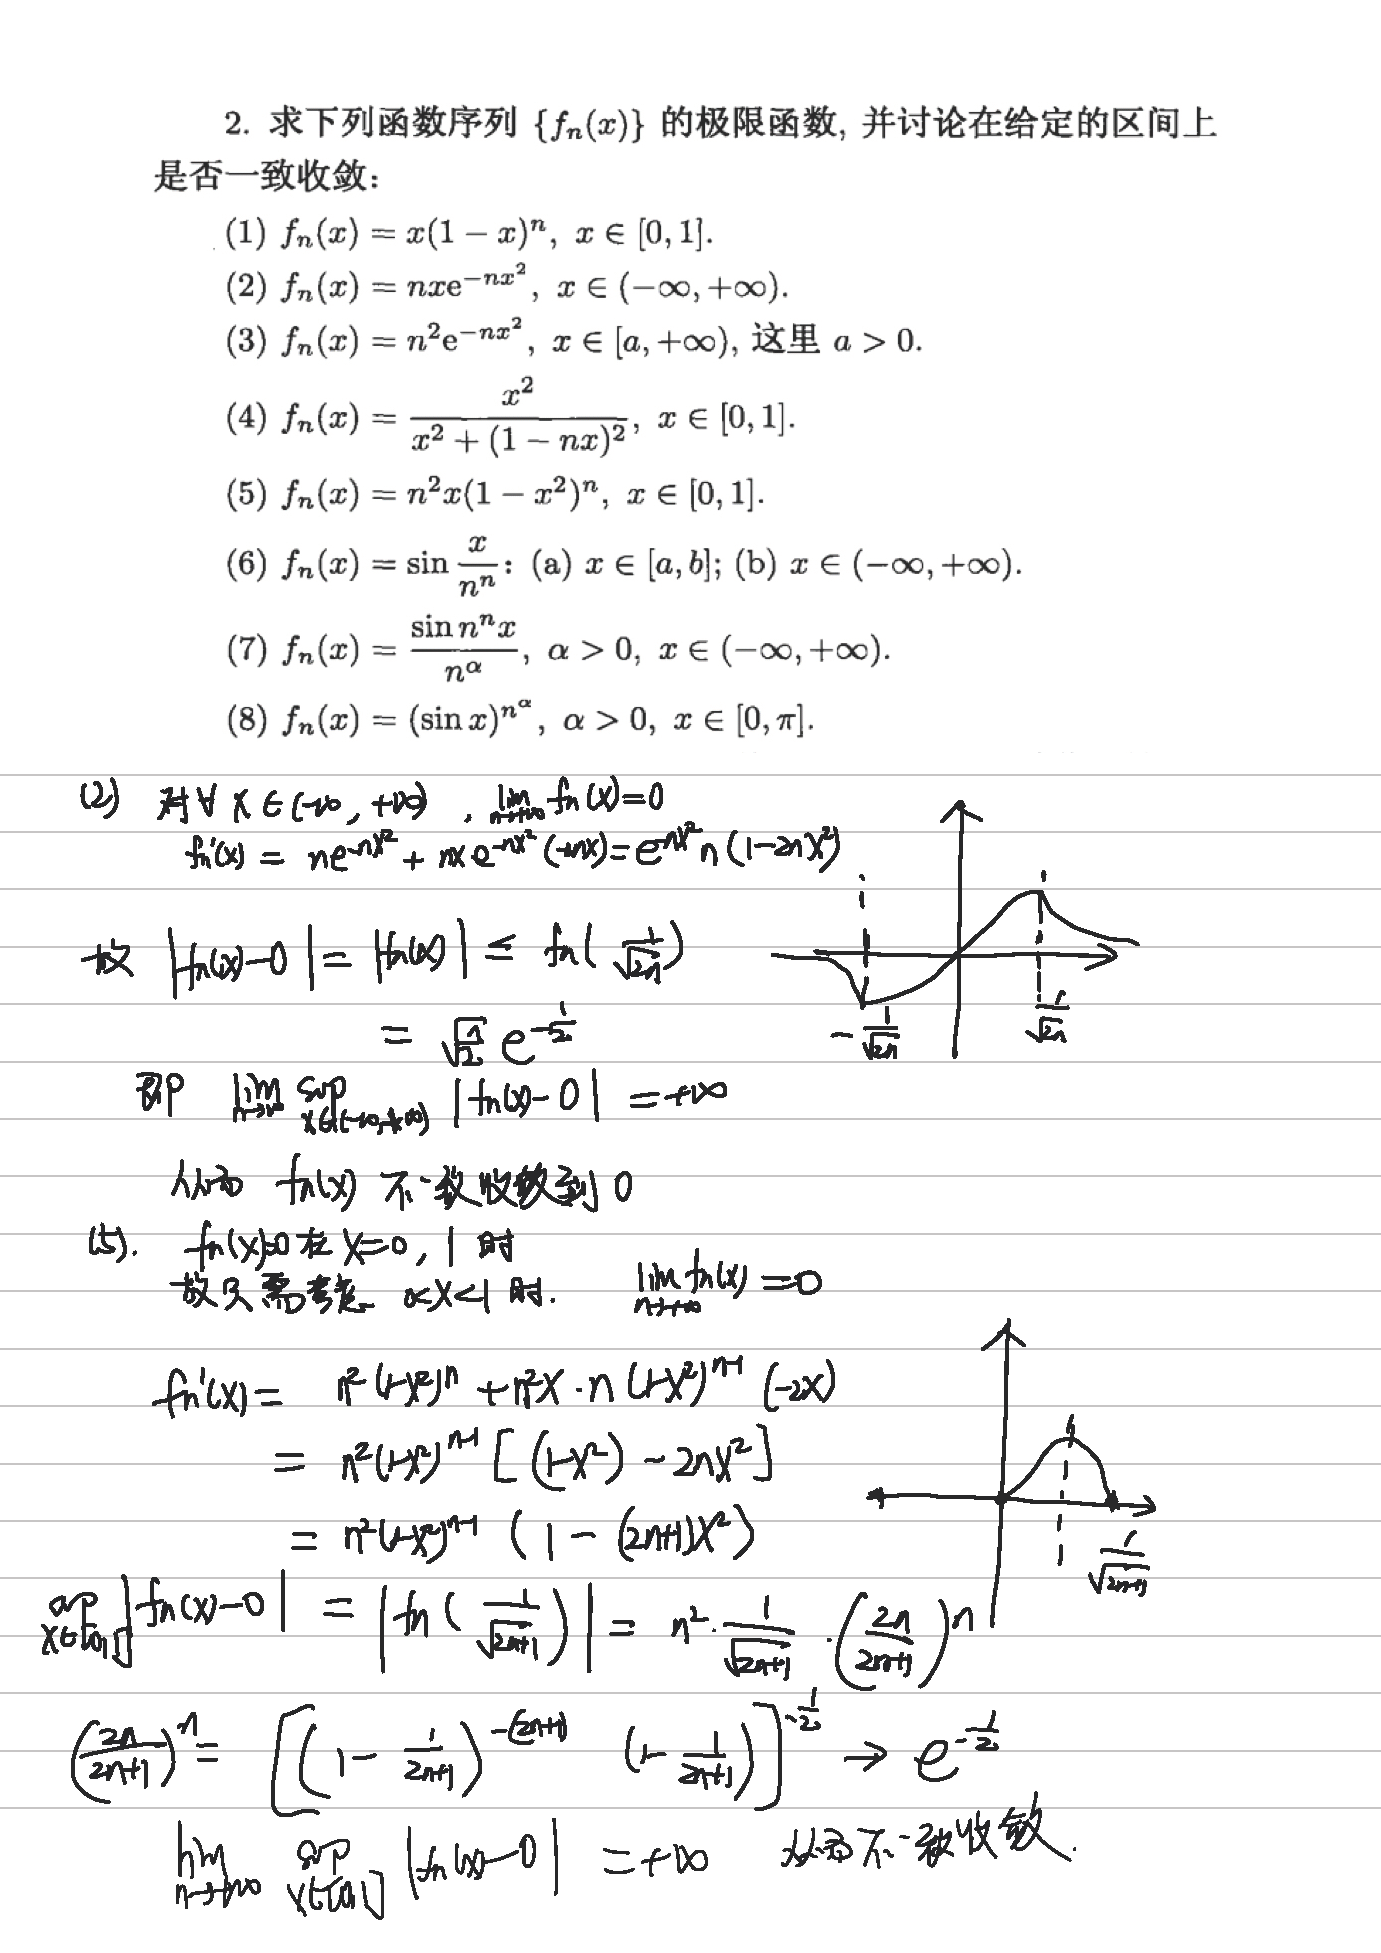 2. 求下列函数序列 {fₙ(x)} 的极限函数, 并讨论在给定的区间上
是否一致收敛:
(1) fₙ(x) = x(1 − x)ⁿ, x ∈ [0, 1].
(2) fₙ(x) = nxe^{−nx²}, x ∈ (−∞, +∞).
(3) fₙ(x) = n²e^{−nx²}, x ∈ [a, +∞), 这里 a > 0.
(4) fₙ(x) = x²/(x² + (1 − nx)²), x ∈ [0, 1].
(5) fₙ(x) = n²x(1 − x²)ⁿ, x ∈ [0, 1].
(6) fₙ(x) = sin x/nⁿ: (a) x ∈ [a, b]; (b) x ∈ (−∞, +∞).
(7) fₙ(x) = (sin nⁿx)/n^α, α > 0, x ∈ (−∞, +∞).
(8) fₙ(x) = (sin x)^{n^α}, α > 0, x ∈ [0, π].
(2) 对∀ x∈(-∞, +∞), lim_{n→+∞} fn(x)=0
fn'(x) = ne^{-nx²} + nx e^{-nx²}(-2nx) = e^{-nx²} n (1-2nx²)
故 |fn(x)-0| = |fn(x)| ≤ fn(1/√(2n))
= √(n/2) e^{-1/2}
-1/√(2n) 1/√(2n)
即 lim_{n→∞} sup_{x∈(-∞,+∞)} |fn(x)-0| = +∞
从而 fn(x) 不一致收敛到 0
(5). fn(x)=0 在 x=0, 1 时
故只需考虑 0<x<1 时. lim_{n→+∞} fn(x) = 0
fn'(x) = n²(1-x²)ⁿ + n²x · n (1-x²)^{n-1} (-2x)
= n²(1-x²)^{n-1} [(1-x²) - 2nx²]
= n²(1-x²)^{n-1} (1 - (2n+1)x²)
1/√(2n+1)
sup_{x∈[0,1]} |fn(x)-0| = |fn(1/√(2n+1))| = n² · 1/√(2n+1) · (2n/(2n+1))ⁿ
(2n/(2n+1))ⁿ = [(1 - 1/(2n+1))^{-(2n+1)} (1 - 1/(2n+1))]^{-1/2} → e^{-1/2}
lim_{n→+∞} sup_{x∈[0,1]} |fn(x)-0| = +∞ 从而不一致收敛.